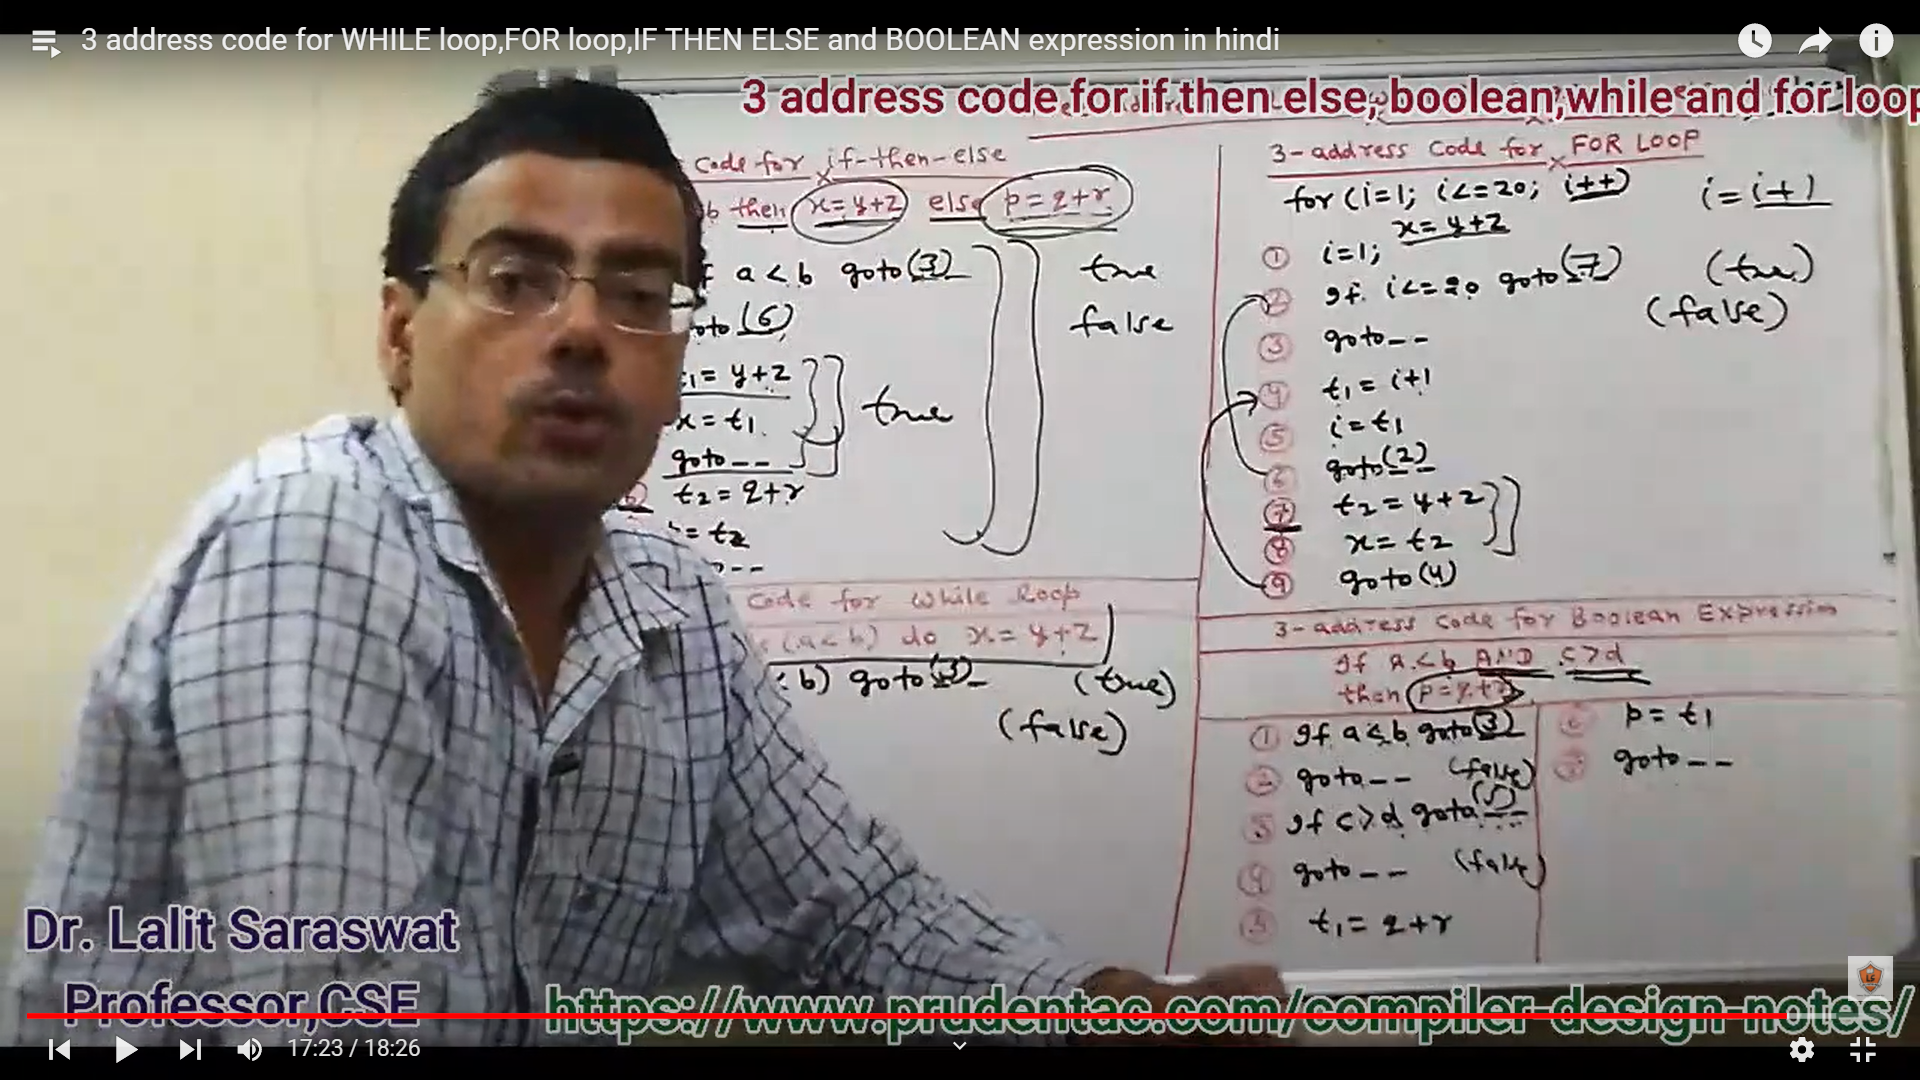 3 address code for WHILE loop,FOR loop,IF THEN ELSE and BOOLEAN expression in hindi
3 address code for if then else, boolean,while and for loop
code for if-then-else
b then x=y+z else p=q+r
a<b goto (3)
true
goto (6)
false
t1 = y+z
x = t1
true
goto --
t2 = q+r
= t2
--
Code for while loop
(a<b) do x=y+z
b) goto (3)
(true)
(false)
3-address Code for FOR LOOP
for (i=1; i<=20; i++)
i = i+1
x=y+z
① i=1;
② If i<=20 goto (7)
(true)
(false)
③ goto --
④ t1 = i+1
⑤ i = t1
⑥ goto (2)
⑦ t2 = y+z
⑧ x = t2
⑨ goto (4)
3-address Code for Boolean Expression
If a<b AND c>d
then p=q+r
① If a<b goto (3)
② goto -- (false)
③ If c>d goto (5)
④ goto -- (false)
⑤ t1 = q+r
⑥ p = t1
⑦ goto --
Dr. Lalit Saraswat
Professor,CSE
https://www.prudentac.com/compiler-design-notes/
17:23 / 18:26